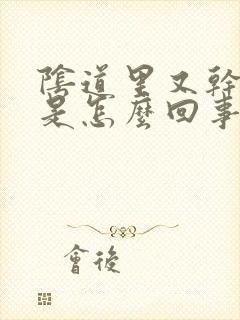 陰道里又幹
是怎麼回事
會後